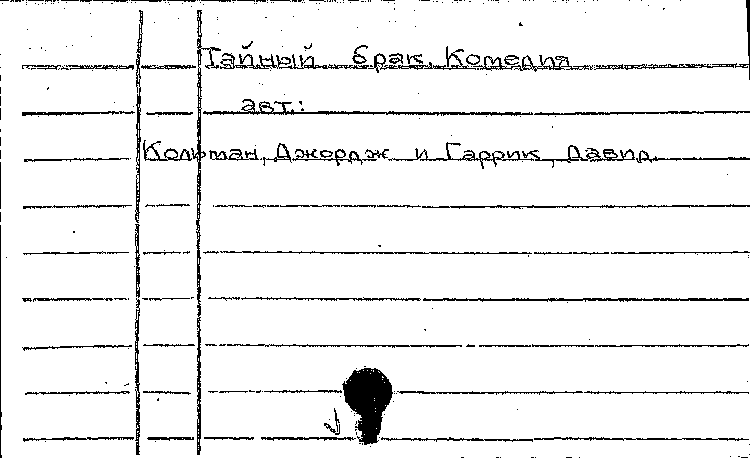 Тайный брак. Комедия
авт.:
Кольман, Джордж и Гаррик, Давид.